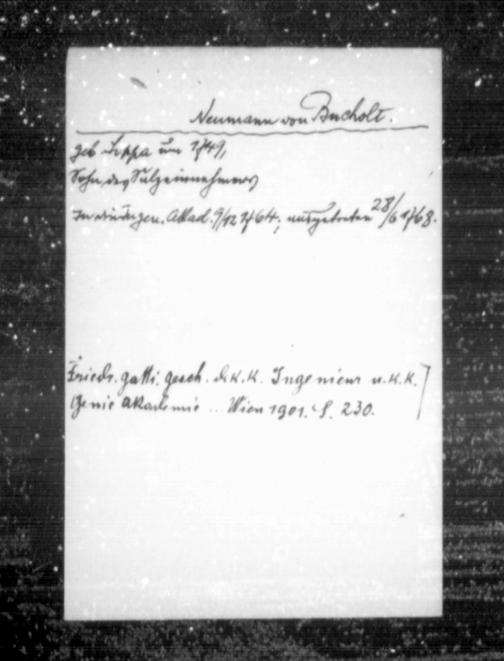 Neumann von Bucholt.
geb. Lippa um 1749,
Sohn des Salzeinnehmers
In die Ingen. Akad. 9/12 1764, ausgetreten 28/6 1768.
Friedr. Gatti. Gesch. d. k. k. Ingenieur u. k. k.
Genie Akademie ... Wien 1901. S. 230.